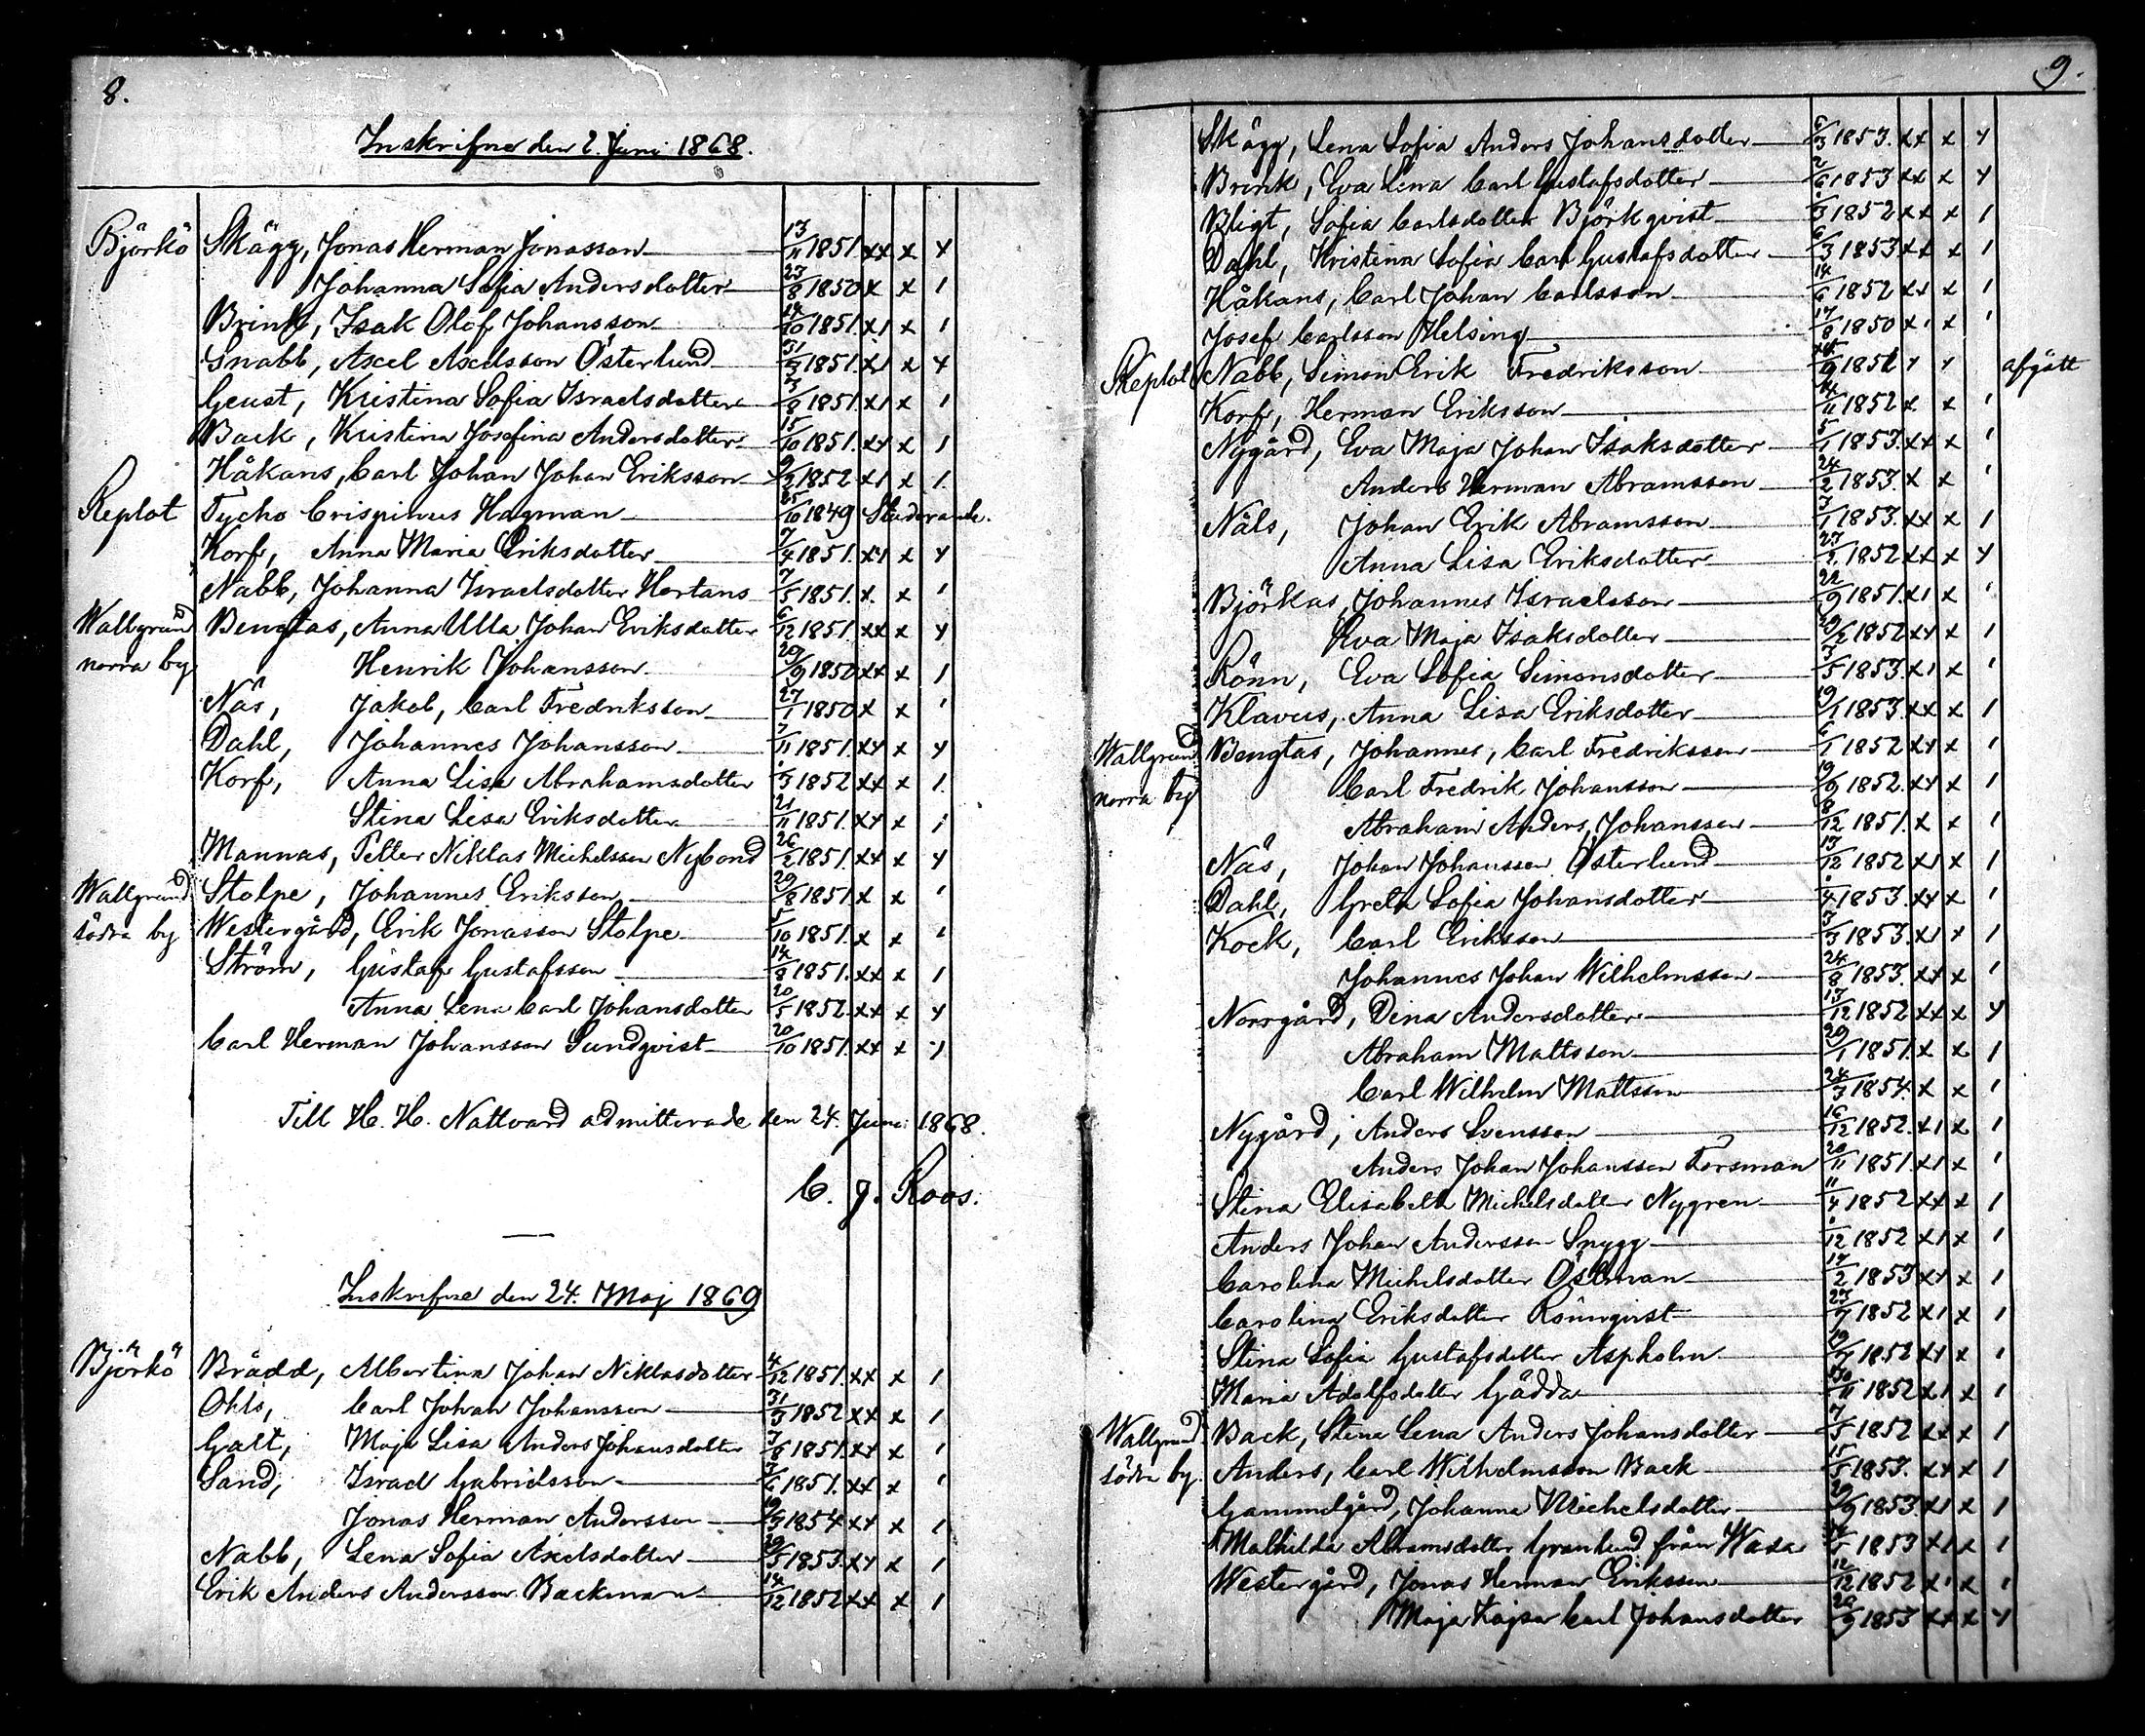 8.
Inskrifne den 2. Juni 1868.
Björkö Skägg, Jonas Herman Jonasson 13/11 1851. xx x x
Johanna Sofia Andersdotter 23/8 1850 x x 1
Brink, Isak Olof Johansson 14/10 1851. x1 x 1
Snabb, Axel Axelsson Österlund 31/3 1851. x1 x x
Geust, Kristina Sofia Israelsdotter 3/8 1851. x1 x 1
Back, Kristina Josefina Andersdotter 15/10 1851. xx x 1
Håkans, Carl Johan Johan Eriksson 9/2 1852 x1 x 1.
Replot Tycho Crispinus Hagman 25/10 1849 Studerande.
Korf, Anna Maria Eriksdotter 7/4 1851. xx x x
Nabb, Johanna Israelsdotter Hertans 7/5 1851. x. x 1
Wallgrund Bengtas, Anna Ulla Johan Eriksdotter 6/12 1851. xx x x
norra by Henrik Johansson 29/9 1850 xx x 1
Näs, Jakob, Carl Fredriksson 27/1 1850 x x 1
Dahl, Johannes Johansson 7/11 1851. xx x x
Korf, Anna Lisa Abrahamsdotter 1/3 1852 xx x 1.
Stina Lisa Eriksdotter 21/11 1851. xx x 1
Mannas, Petter Niklas Michelsson Nybond 26/2 1851. xx x x
Wallgrund Stolpe, Johannes Eriksson 29/8 1851. x x 1
södra by Westergård, Erik Jonasson Stolpe 5/10 1851. x x 1
Ström, Gustaf Gustafsson 14/8 1851. xx x 1
Anna Lena Carl Johansdotter 20/5 1852. xx x x
Carl Herman Johansson Sundqvist 20/10 1851. xx x x
Till H. H. Nattvard admitterade den 24. Juni 1868.
C. J. Roos.
Inskrifne den 24. Maj 1869
Björkö Brådd, Albertina Johan Niklasdotter 4/12 1851. xx x 1
Ohls, Carl Johan Johansson 31/3 1852 xx x 1
Galt, Maja Lisa Anders Johansdotter 7/8 1851. xx x 1
Sand, Israel Gabrielsson 3/6 1851. xx x 1
Jonas Herman Andersson 19/3 1854 xx x 1
Nabb, Lena Sofia Axelsdotter 29/5 1853. xx x 1
Erik Anders Andersson Backman 14/12 1852 xx x 1
9.
Skägg, Lena Sofia Anders Johansdotter 6/3 1853. xx x x
Brink, Eva Lena Carl Gustafsdotter 2/6 1853 xx x x
Bligt, Sofia Carlsdotter Björkqvist 6/3 1852 xx x 1
Dahl, Kristina Sofia Carl Gustafsdotter 6/3 1853 xx x 1
Håkans, Carl Johan Carlsson 14/6 1852 xx x 1
Josef Carlsson Helsing 17/8 1850 x1 x 1
Replot Nabb, Simon Erik Fredriksson 1852 x x afgått
Korf, Herman Eriksson 1852 x x 1
Nygård, Eva Maja Johan Isaksdotter 5/1 1853. xx x 1
Anders Herman Abramsson 24/2 1853. x x 1
Nåls, Johan Erik Abramsson 3/1 1853. xx x 1
Anna Lisa Eriksdotter 27/2 1852 xx x x
Björkas, Johannes Israelsson 22/9 1851. x1 x 1
Eva Maja Isaksdotter 29/2 1852 xx x 1
Rönn, Eva Sofia Simonsdotter 3/5 1853. x1 x 1
Klavus, Anna Lisa Eriksdotter 19/1 1853. xx x 1
Wallgrund Bengtas, Johannes, Carl Fredriksson 6/1 1852 xx x 1
norra by Carl Fredrik Johansson 19/9 1852. xx x 1
Abraham Anders Johansson 8/12 1851. x x 1
Näs, Johan Johansson Österlund 13/12 1852 x1 x 1
Dahl, Greta Sofia Johansdotter 1/4 1853. xx x 1
Kock, Carl Eriksson 7/3 1853. x1 x 1
Johannes Johan Wilhelmsson 24/8 1853. xx x 1
Norrgård, Dina Andersdotter 13/12 1852 xx x x
Abraham Mattsson 29/1 1851. x x 1
Carl Wilhelm Mattsson 24/3 1854. x x 1
Nygård, Anders Svensson 16/12 1852. x1 x 1
Anders Johan Johansson Forsman 20/11 1851 x1 x 1
Stina Elisabeth Michelsdotter Nygren 11/4 1852 xx x 1
Anders Johan Andersson Snygg 1/12 1852 x1 x 1
Carolina Michelsdotter Östman 17/2 1853 xx x 1
Carolina Eriksdotter Rönnqvist 23/7 1852 x1 x 1
Stina Sofia Gustafsdotter Aspholm 19/7 1852 xx x 1
Maria Adolfsdotter Gädda 30/11 1852 x1 x 1
Wallgrund Back, Stina Lena Anders Johansdotter 7/5 1852 xx x 1
södra by. Anders, Carl Wilhelmsson Back 15/5 1853. xx x 1
Gammelgård, Johanna Michelsdotter 29/9 1853. x1 x 1
Mathilda Abramsdotter Granlund från Wasa 1853 x1 x 1
Westergård, Jonas Herman Eriksson 12/12 1852 x1 x 1
Maja Kajsa Carl Johansdotter 29/9 1853 xx x x